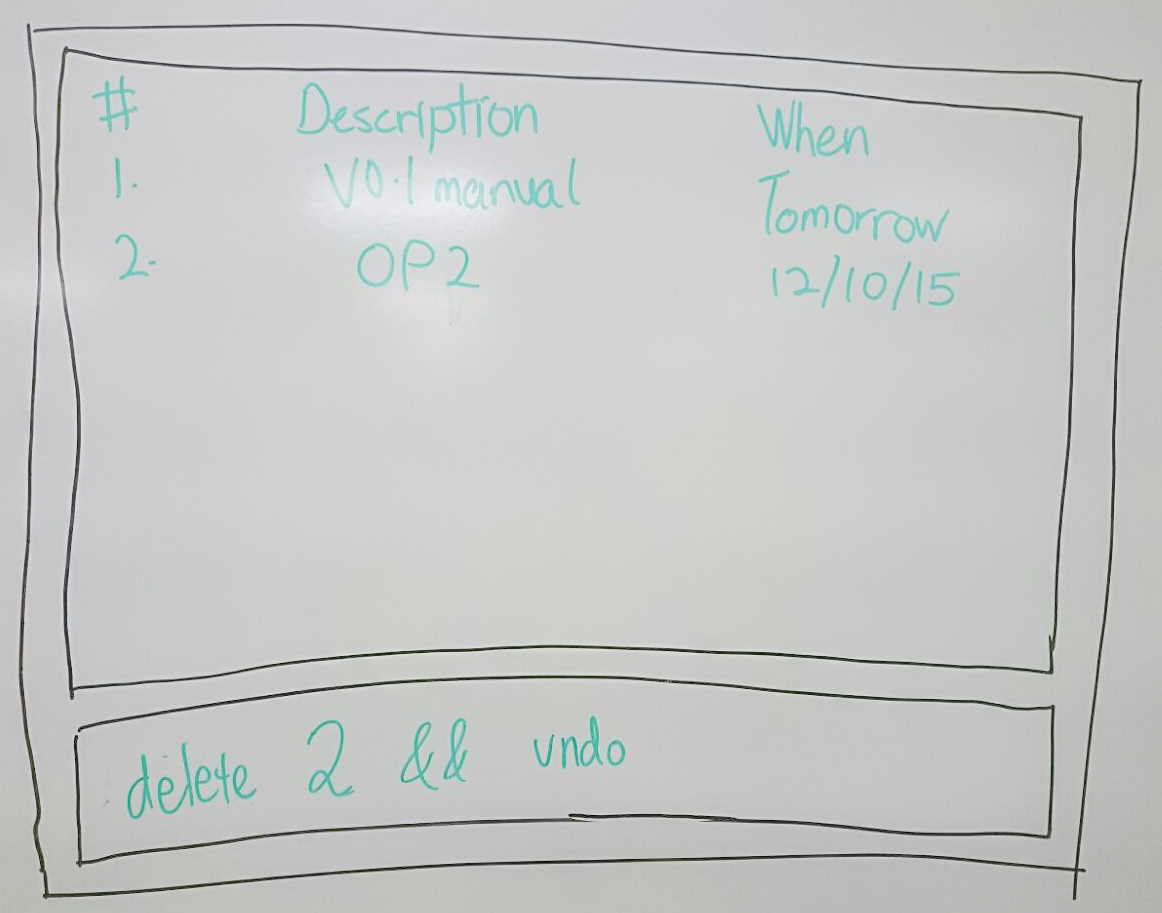 # Description When
1. V0.1 manual Tomorrow
2. OP2 12/10/15
delete 2 && undo